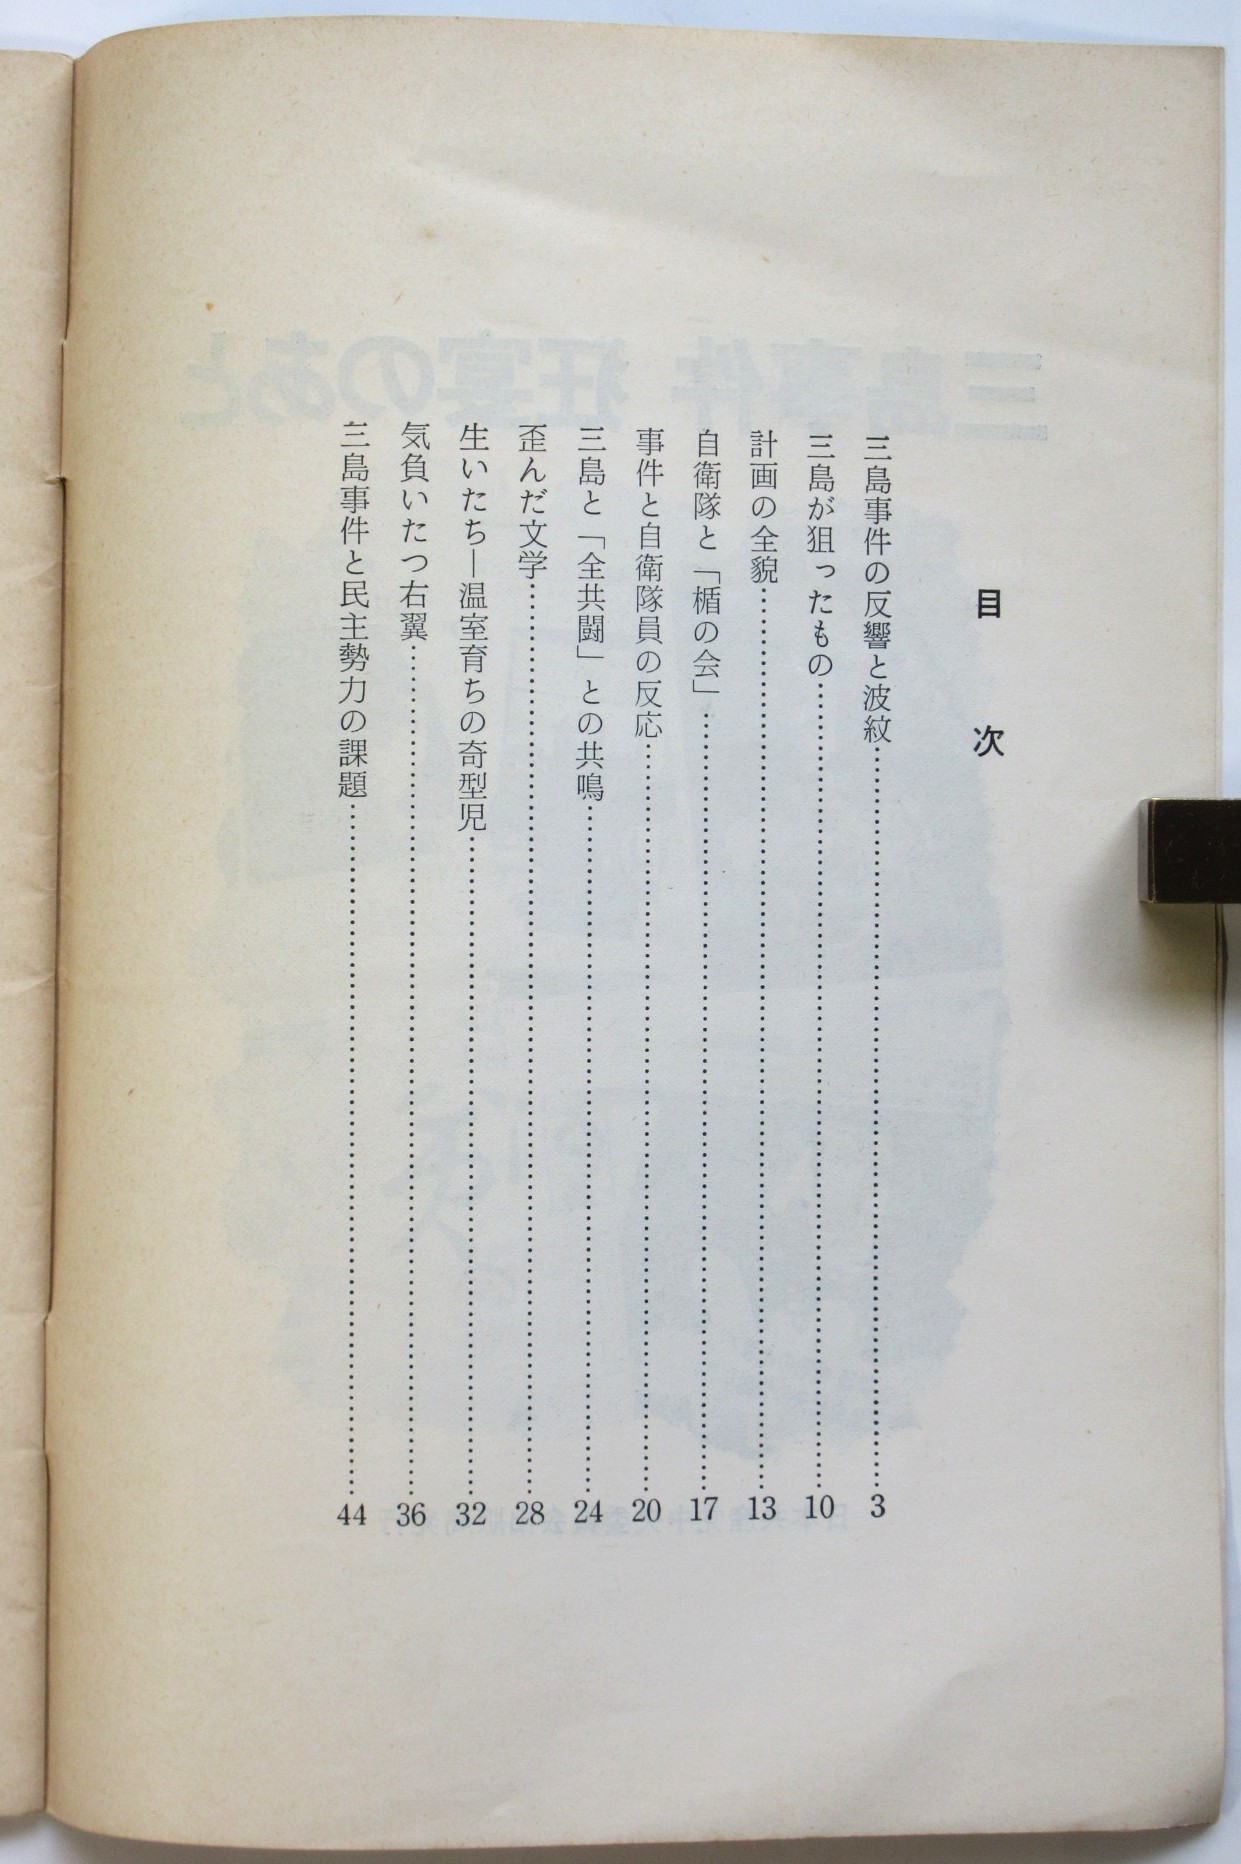 目次
三島事件の反響と波紋……3
三島が狙ったもの……10
計画の全貌……13
自衛隊と「楯の会」……17
事件と自衛隊員の反応……20
三島と「全共闘」との共鳴……24
歪んだ文学……28
生いたち—温室育ちの奇型児……32
気負いたつ右翼……36
三島事件と民主勢力の課題……44
三島事件 狂宴のあと
日本共産党中央委員会出版局発行